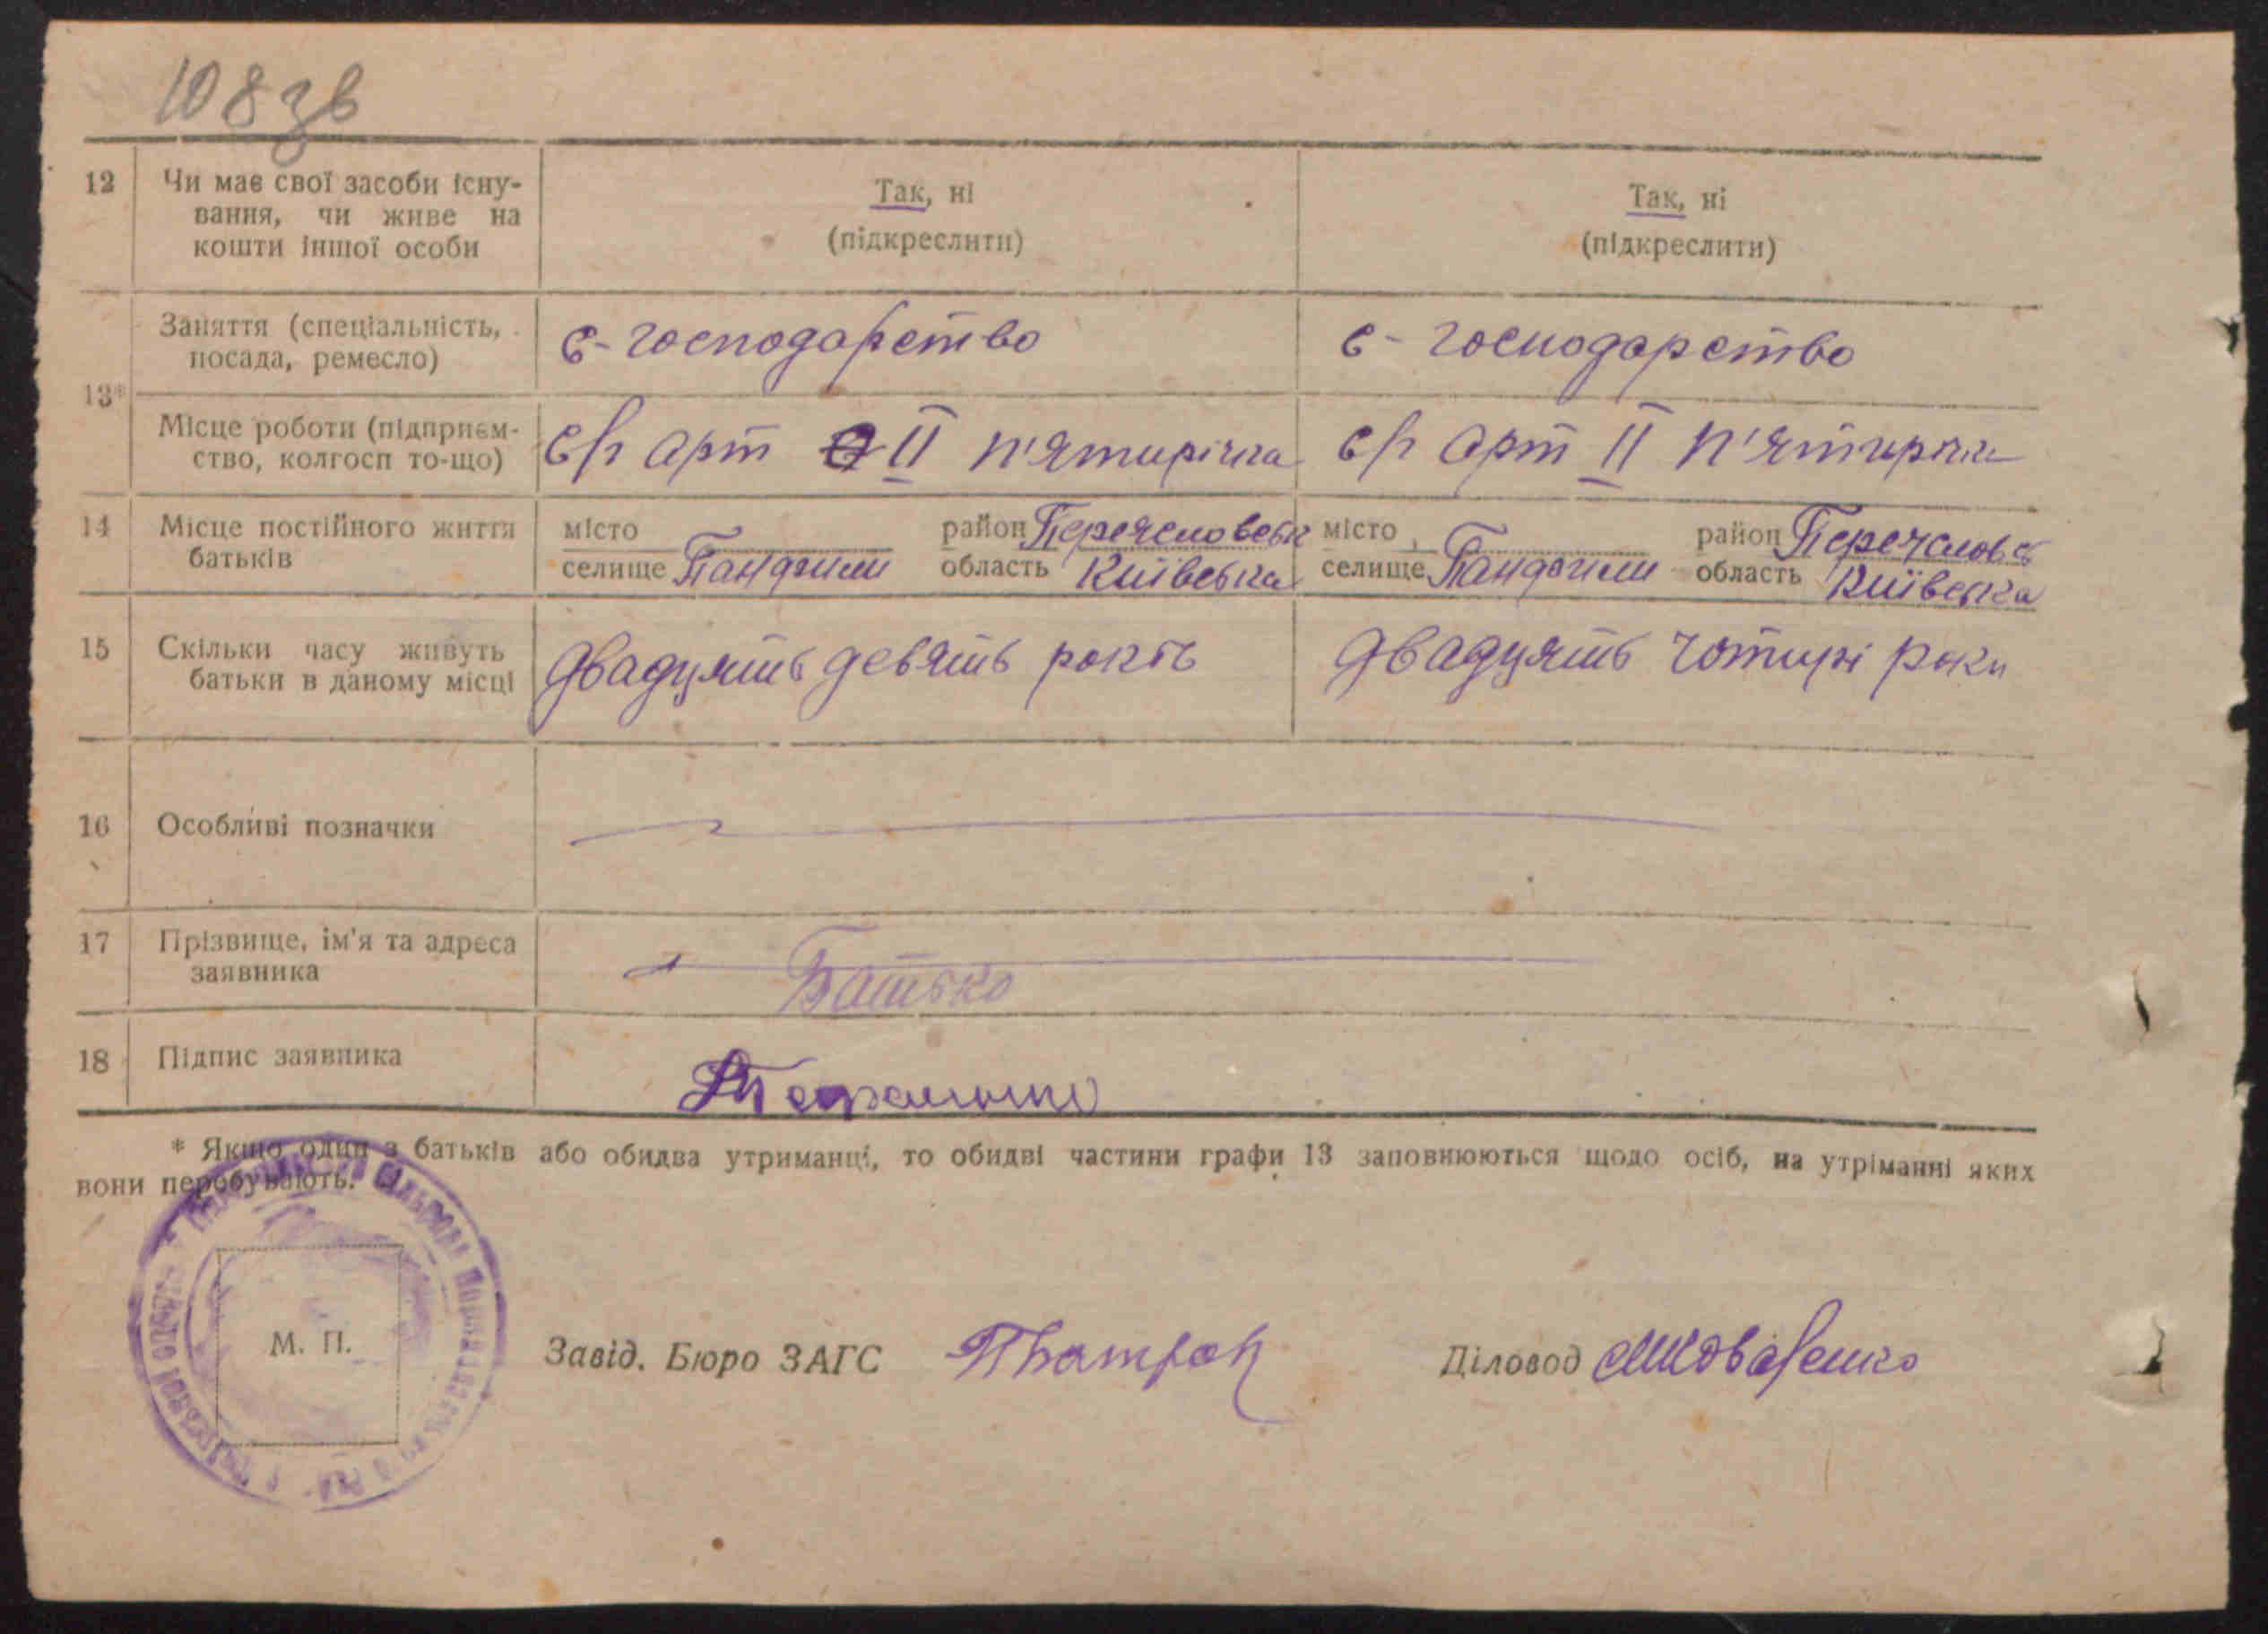 108 зв
12 Чи має свої засоби існу-
вання, чи живе на
кошти іншої особи
Так, ні
(підкреслити)
Так, ні
(підкреслити)
13*
Заняття (спеціальність,
посада, ремесло)
с-господарство
с-господарство
Місце роботи (підприєм-
ство, колгосп то-що)
с/г арт II п'ятирічка
с/г арт II п'ятирічка
14 Місце постійного життя
батьків
місто
селище
район
область Київська
місто
селище
район
область Київська
15 Скільки часу живуть
батьки в даному місці
двадцять девять років
двадцять чотирі роки
16 Особливі позначки
17 Прізвище, ім'я та адреса
заявника
Батько
18 Підпис заявника
* Якщо один з батьків або обидва утриманці, то обидві частини графи 13 заповнюються щодо осіб, на утріманні яких
вони перебувають.
М. П.
Завід. Бюро ЗАГС
Діловод